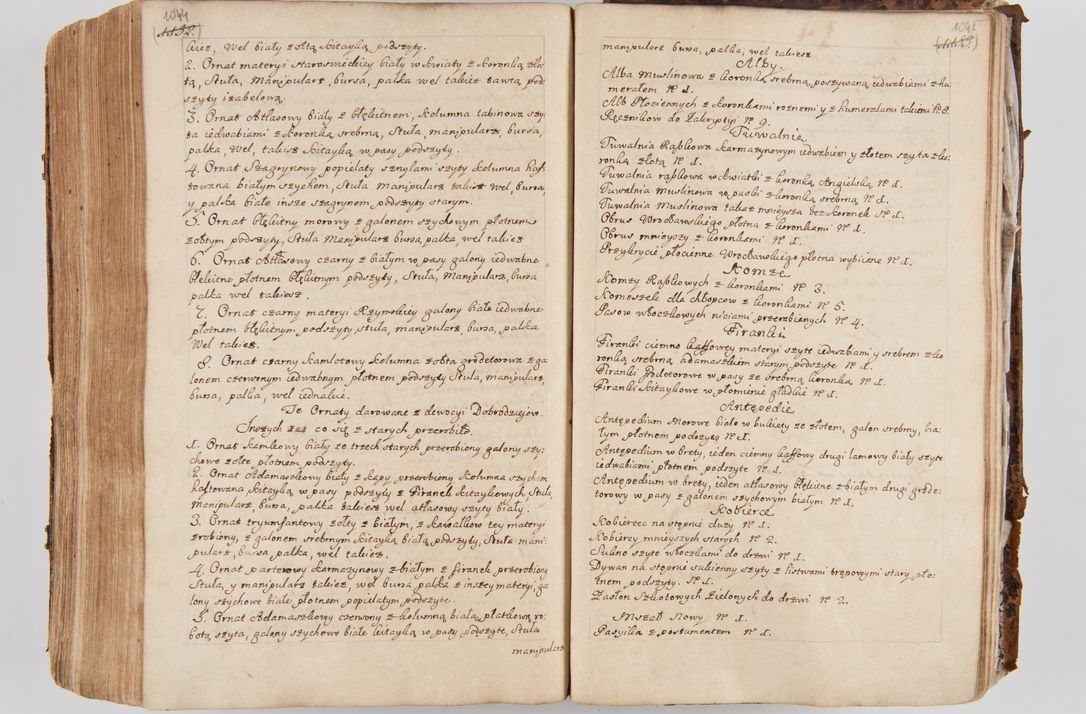 1044
kież, wel biały zołtą kitayką podszyty.
2. Ornat materyi staroswieckiey biały w kwiaty z koronką zło-
tą, Stuła, manipularz, bursa, palka wel takież tawtą pod
szyty izabelową.
3. Ornat Atłasowy biały z błękitnem, kolumna tabinowa szy-
ta iedwabiami z koronką srebrną, Stuła, manipularz, bursa,
palka, wel, takież kitayką w pasy podszyty.
4. Ornat Szagrynowy popielaty sznylami szyty kolumna haf-
towana białym szychem, Stuła manipularz takież wel, bursa,
y palka białe insze szagrynem podszyty starym.
5. Ornat błękitny morowy z galonem szychowym płotnem
zołtym podszyty, Stuła manipularz bursa, palka, wel takież
6. Ornat Atłasowy czarny z białym w pasy galony iedwabne
błękitne płotnem błękitnym podszyty, Stuła, Manipularz, bursa
palka wel takiesz.
7. Ornat czarny materyi Rzymskiey galony białe iedwabne
płotnem błękitnym podszyty, stuła, manipularz bursa, palka
Wel takiez.
8. Ornat czarny kamlotowy kolumna zołta grodetorowa z ga-
lonem czerwonym iedwabnym, płotnem podszyty Stula, manipularz,
bursa, palka, wel iednakie.
Te Ornaty darowane z dewocyi Dobrodzieiow.
Inszych co się z starych przerobiło.
1. Ornat kamkowy biały ze trzech starych przerobiony galony szy-
chowe zołte płotnem podszyty.
2. Ornat Adamaszkowy biały z kapy przerobiony kolumna szychem
haftowana kitayką w pasy podszyty z Firanek kitaykowych, Stuła,
manipularz, bursa, palka takiesz wel atłasowy szyty biały.
3. Ornat tryumfantowy zołty z białym, z kawałkow tey materyi
zrobiony, z galonem srebrnym kitayką białą podszyty, Stuła mani-
pularz, bursa palka, wel takiez.
4. Ornat parterowy karmazynowy z białym z firanek przerobiony
Stuła, y manipularz takiez, wel bursa palka z inszey materyi, ga
lony szychowe białe płotnem popielatym podszyte.
5. Ornat Adamaszkowy czerwony z kolumną białą płatkową ro-
botą szyta, galony szychowe białe kitayką w pasy podszyte, Stuła
manipularz
1045
manipularz bursa, palka, wel takiesz
Alby.
Alba Muslinowa z koronką srebrną, poszywaną iedwabiami z hu
merałem N 1.
Alb Płociennych z koronkami roznemi y z humerałami takiemi N 8.
Ręcznikow do Zakrystyi N 9.
Tuwalnie
Tuwalnia Rąbkowa karmazynowym iedwabiem y złotem szyta z ko-
ronką złotą N 1.
Tuwalnia rąbkowa w kwiatki z koronką Angielską N 1.
Tuwalnia Muslinowa w paski z koronką srebrną N 1.
Tuwalnia Muslinowa takaż mnieysza bez koronek N 1.
Obrus Wrocławskiego płotna z koronkami N 1.
Obrus mnieyszy z koronkami N 1.
Przykrycie płocienne Wrocławskiego płotna wybiiane N 1.
Komże
Komży Rąbkowych z koronkami N 3.
Komeszek dla chłopcow z koronkami N 5.
Pasow włoczkowych niciami przerabianych N 4.
Firanki
Firanki ciemno kaffowey materyi szyte iedwabiami y srebrem z ko
ronką srebrną adamaszkiem starym podszyte N 1.
Firanki Grodetorowe w pasy ze srebrną koronką N 1.
Firanki kitaykowe w płomienie gładkie N 1.
Antepedie
Antepedium Morowe białe w bukiety ze złotem, galon srebrny, bia-
łym płotnem podszyte N 1.
Antepedium w brety, ieden ciemny kaffowy drugi lamowy biały szyte
iedwabiami płotnem podszyte N 1.
Antepedium w brety, ieden atłasowy błękitne z białym drugi grode-
torowy w pasy z galonem szychowym białym N 1.
Kobierce
Kobierzec na stopnie duży N 1.
Kobiercy mnieyszych starych N 2.
Sukno szyte włoczkami do drzwi N 1.
Dywan na stopnie sukienny szyty z listwami trepowymi stary, pło-
tnem podszyty. N 1.
Zasłon Szkotowych Zielonych do drzwi N 2.
Mszał Nowy N 1.
Pasyika z postumentem N 1.